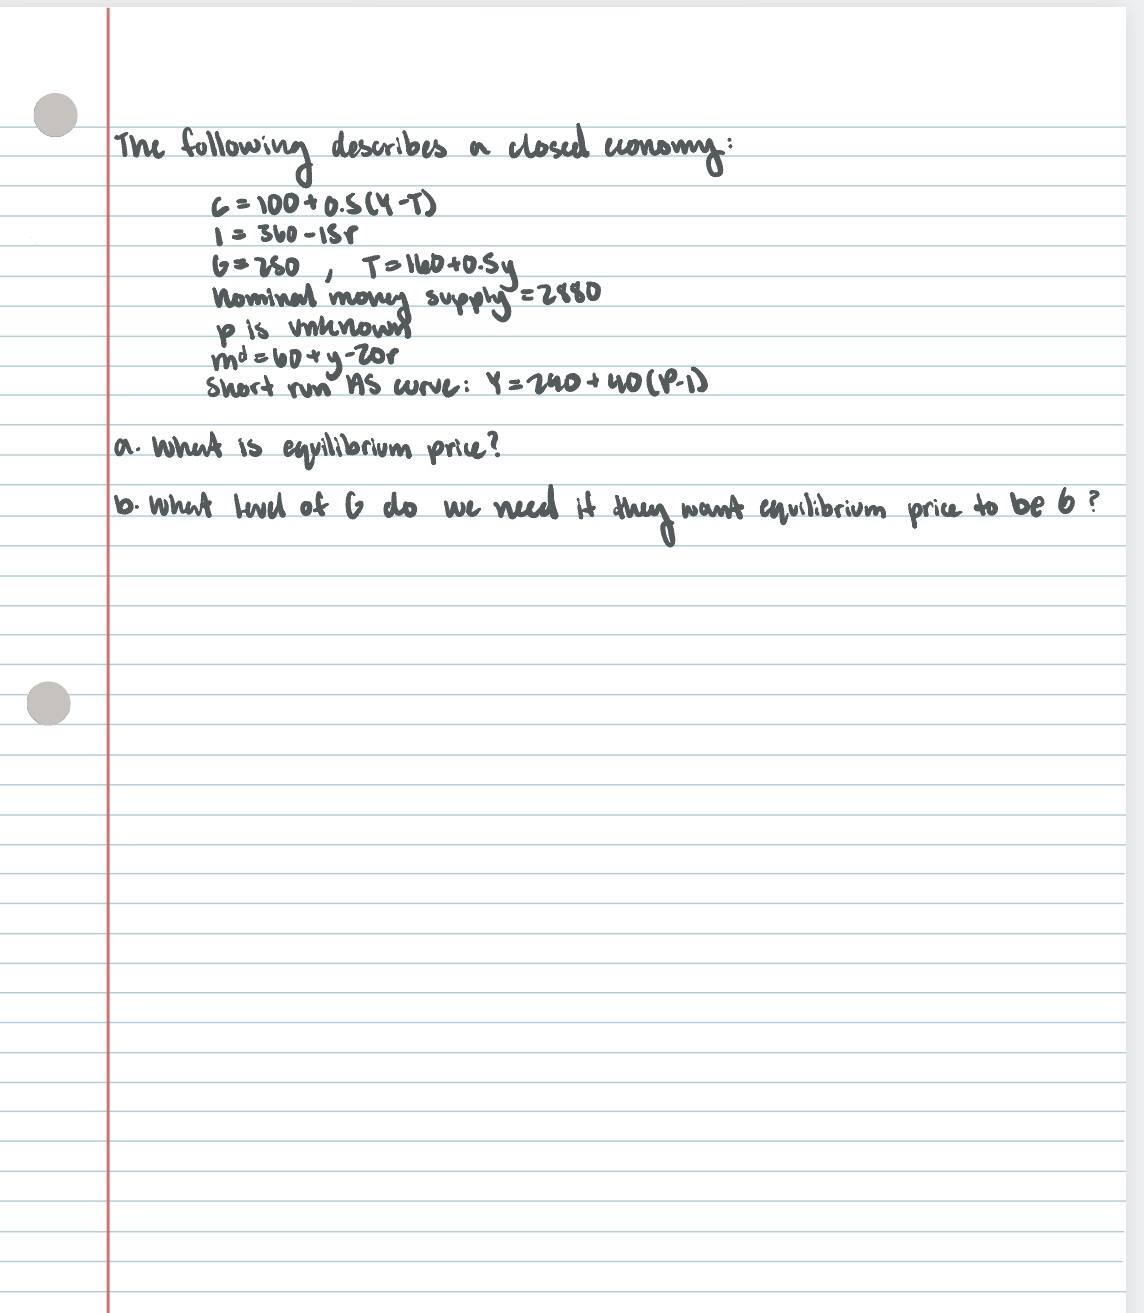 The following describes a closed economy:
C = 100 + 0.5(Y-T)
I = 360 - 15r
G = 250 , T = 160 + 0.5y
Nominal money supply = 2880
p is unknown
m^d = 60 + y - 20r
Short run AS curve: Y = 240 + 40(P-1)
a. What is equilibrium price?
b. What level of G do we need if they want equilibrium price to be 6?